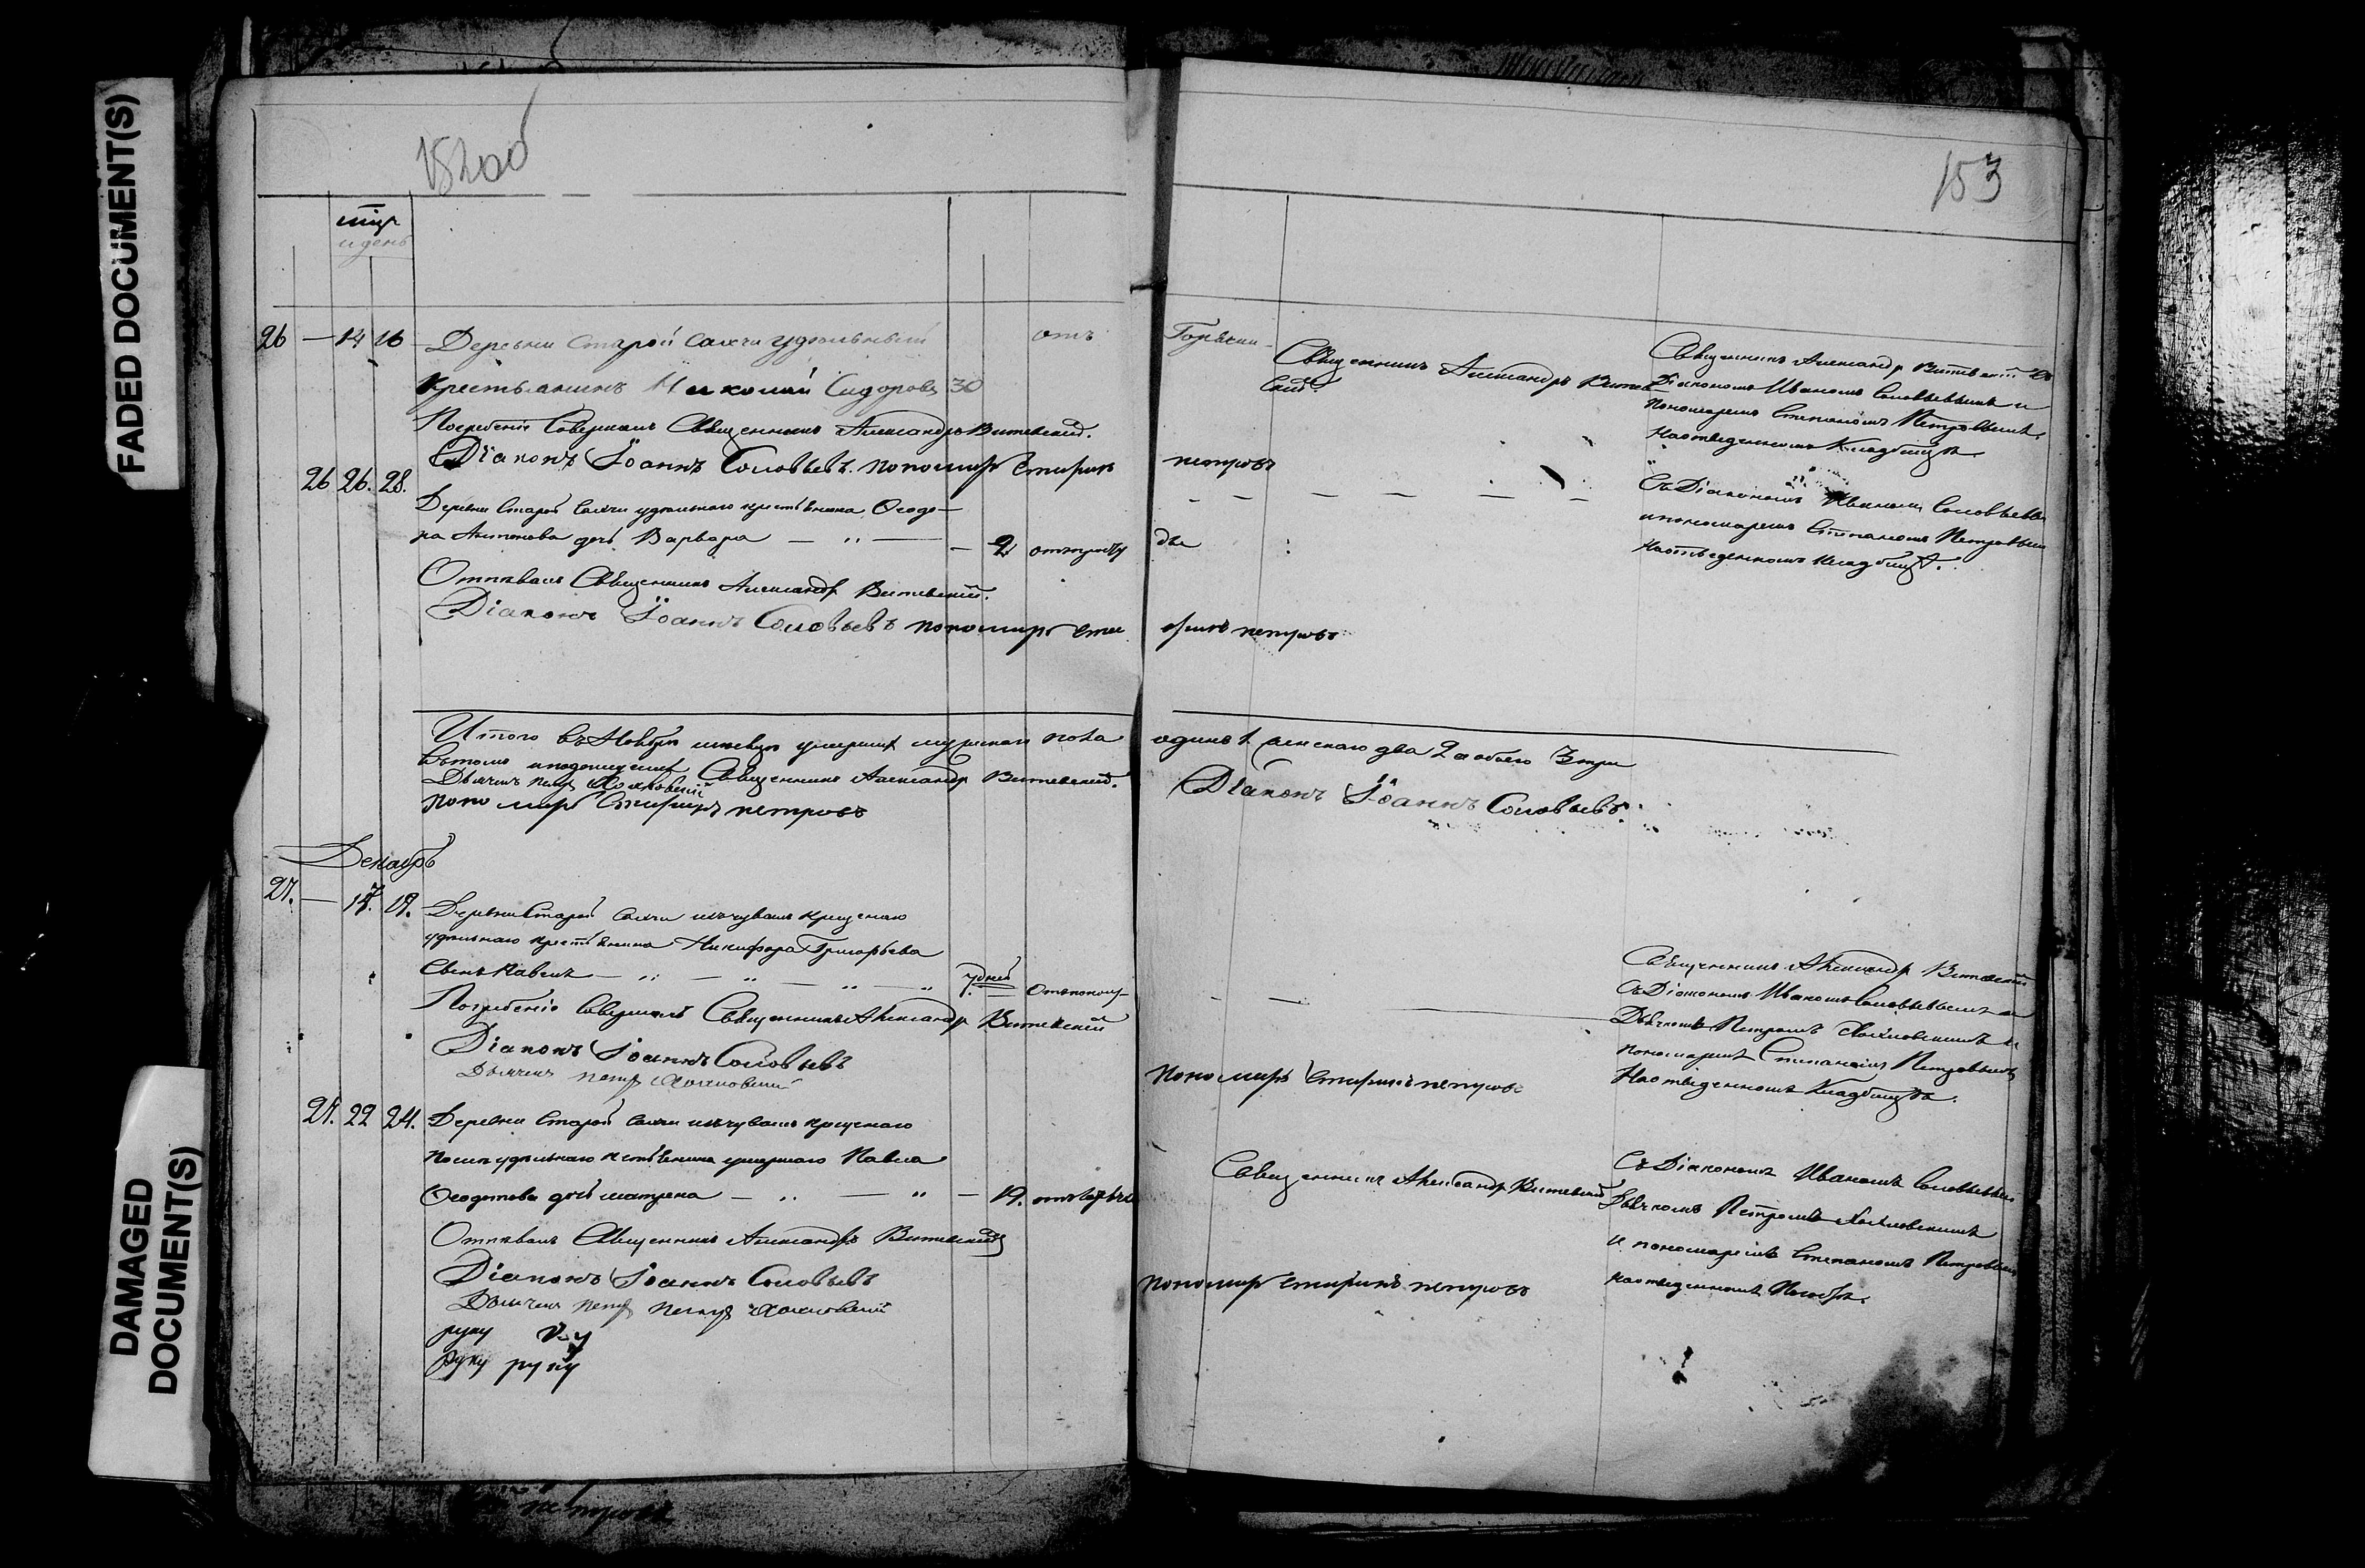 FADED DOCUMENT(S)
DAMAGED DOCUMENT(S)
152 об
153
и день
26 — 14 16 Деревни Старой Сахчи удѣльный отъ
крестьянинъ Николай Сидоровъ 30
Погребеніе совершалъ Священникъ Александръ Витевскій.
Діаконъ Іоаннъ Соловьевъ. пономарь
26 26. 28.
Деревни Старой Сахчи удѣльнаго крестьянина Ѳеодо-
ра Антонова дочь Варвара — „ — — 2
Отпѣвалъ Священникъ Александръ Витевскій.
Діаконъ Іоаннъ Соловьевъ пономарь
Итого въ Ноябрѣ умершихъ мужскаго пола
Въ томъ и подпишемся Священникъ Александръ Витевскій.
Дьячекъ Петръ
пономарь петровъ
Декабрь
27. — 17. 19. Деревни Старой Сахчи изъ чувашъ крещенаго
удѣльнаго крестьянина Никифора Григорьева
сынъ Павелъ — „ — „ — „ — „ 7 дней
Погребеніе совершалъ Священникъ Александръ Витевскій
Діаконъ Іоаннъ Соловьевъ
Дьячекъ Петръ
27. 22 24. Деревни Старой Сахчи изъ чувашъ крещенаго
удѣльнаго умершаго Павла
Ѳедотова дочь Матрена — „ — „ — 19.
Отпѣвалъ Священникъ Александръ Витевскій
Діаконъ Іоаннъ Соловьевъ
Дьячекъ Петръ Петръ
руку
руку руку
Священникъ Александръ
Священникъ Александръ Витевскій
Діакономъ Иваномъ Соловьевымъ и
пономаремъ Степаномъ Петровымъ.
На отведенномъ Кладбищѣ.
петровъ
Съ Діакономъ Иваномъ Соловьевымъ
и пономаремъ Степаномъ Петровымъ
На отведенномъ кладбищѣ.
петровъ
одинъ 1 женскаго два 2 а обоего 3 три
Діаконъ Іоаннъ Соловьевъ.
Священникъ Александръ Витевскій
съ Діакономъ Иваномъ Соловьевымъ и
Дьячкомъ Петромъ
пономаремъ Степаномъ Петровымъ
На отведенномъ Кладбищѣ.
пономарь петровъ
Священникъ Александръ Витевскій
Съ Діакономъ Иваномъ Соловьевымъ
Дьячкомъ Петромъ
и пономаремъ Степаномъ Петровымъ
на отведенномъ
пономарь петровъ